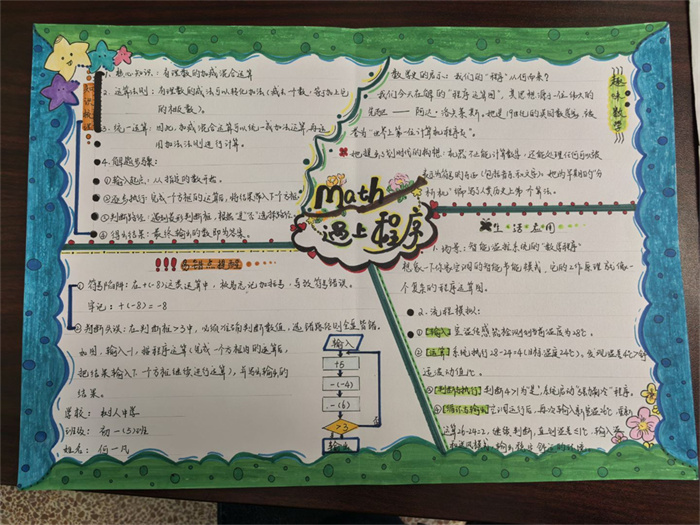 知识梳理
1. 核心知识:有理数的加减混合运算
2. 运算法则:有理数的减法可以转化加法(减去一个数,等于加上它
的相反数)。
3. 统一运算:因此,加减混合运算可以统一成加法运算,再运
用加法法则进行计算。
4. 解题步骤:
①输入起点:从指定的数开始。
②逐步执行:完成一个方框的运算后,将结果带入下个方框
③判断路径:遇到菱形判断框,根据"是""否"选择路径
④得出结果:最终输出的数即为答案。
Math
遇上程序
趣味数学
数学史的启示:我们的"程序"从何而来?
我们今天在解的"程序运算图",其思想源于一位伟大的
先驱 —— 阿达·洛夫莱斯。她是19世纪的英国数学家,被
誉为"世界上第一位计算机程序员"。
她提出了划时代的构想:机器不止能计算数字,还能处理任何可以被
生活应用
1. 场景:智能温控系统的"数学程序"
想象一下你家空调的智能节能模式,它的工作原理就像一
个复杂的程序运算图。
2. 流程模拟:
①【输入】室温传感器检测到当前温度为28℃。
②【运算】系统执行28-24=4(目标温度24℃),发现温差4℃
③【判断与执行】判断4>1为"是",系统启动"强制冷"程序。
④【循环与输出】
运算26-24=2,继续判断,直到温差≤1℃,输入
易错点提醒
①符号陷阱:在+(-8)这类运算中,极易忘记加括号,导致符号错误。
牢记:+(-8)=-8
②判断失误:在判断框>3中,必须准确判断数值,选错路径则全盘皆错。
如图,输入-1,按程序运算(完成一个方框内的运算后,
把结果输入下一个方框继续进行运算),并写出输出的
结果。
学校:树人中学
班级:初一(3)班
姓名:何一凡
输入
+5
-(-4)
-(6)
>3
否
是
输出